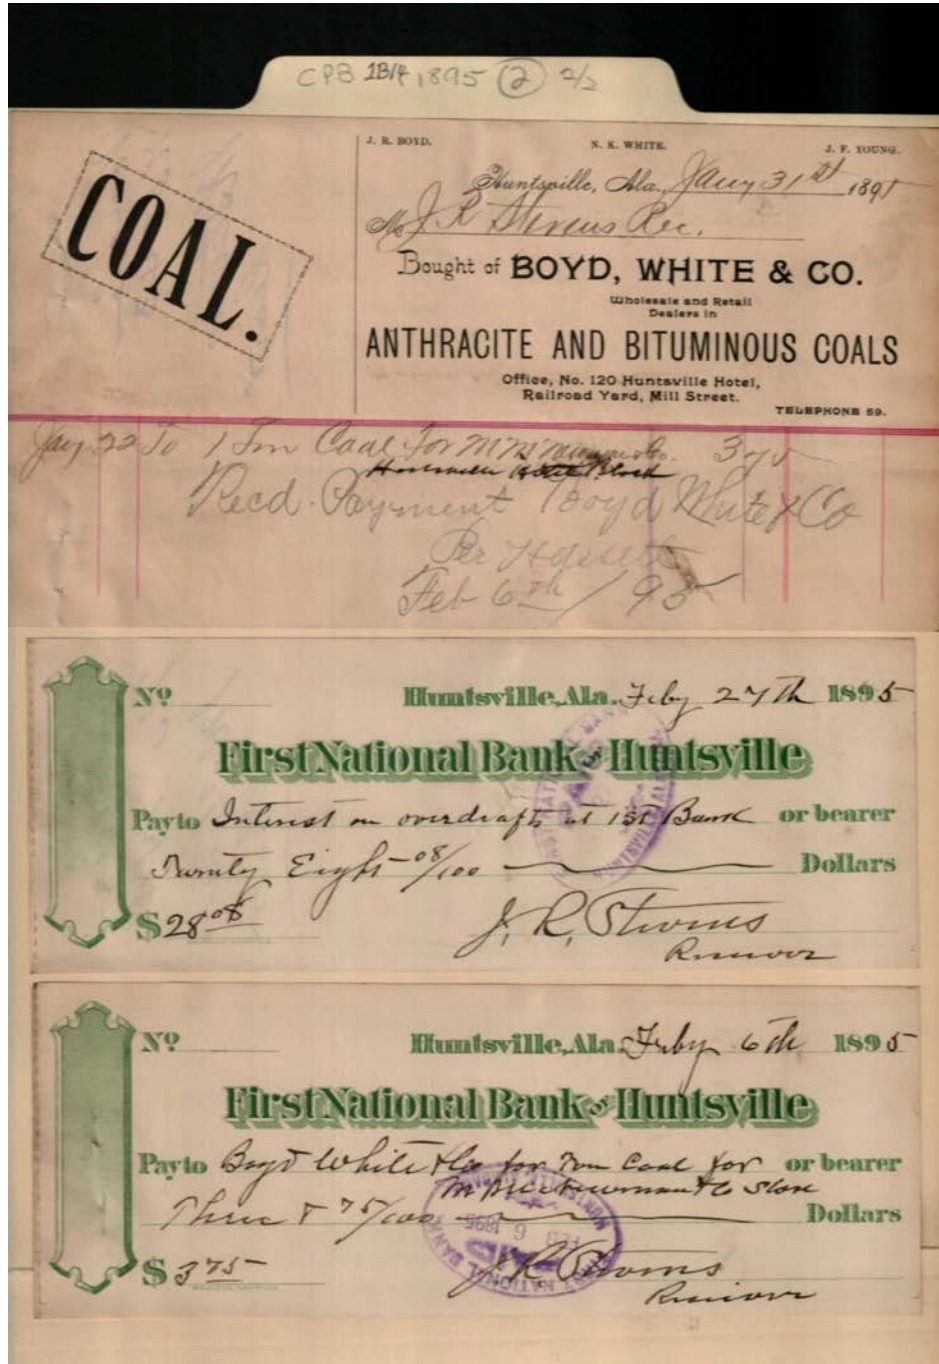 CPB 1B14 1895 (2) 2/2
COAL.
J. R. BOYD. N. K. WHITE. J. F. YOUNG.
Huntsville, Ala., Jany 31st 1895
M J R Stevens Rec.
Bought of BOYD, WHITE & CO.
Wholesale and Retail
Dealers in
ANTHRACITE AND BITUMINOUS COALS
Office, No. 120 Huntsville Hotel,
Railroad Yard, Mill Street.
TELEPHONE 59.
Jany 22 To 1 Ton Coal For 3 75
Recd. Payment Boyd White & Co
Per
Feb 6th / 95
No Huntsville, Ala. Feby 27th 1895
First National Bank of Huntsville
Pay to Interest on overdrafts at 1st Bank or bearer
Twenty Eight 08/100 Dollars
$28 08
J. R. Stevens
Receiver
No Huntsville, Ala. Feby 6th 1895
First National Bank of Huntsville
Pay to Boyd White & Co for Ton Coal for or bearer
Newman & Co Store
Three & 75/100 Dollars
FEB 6 1895
$3 75
J. R. Stevens
Receiver